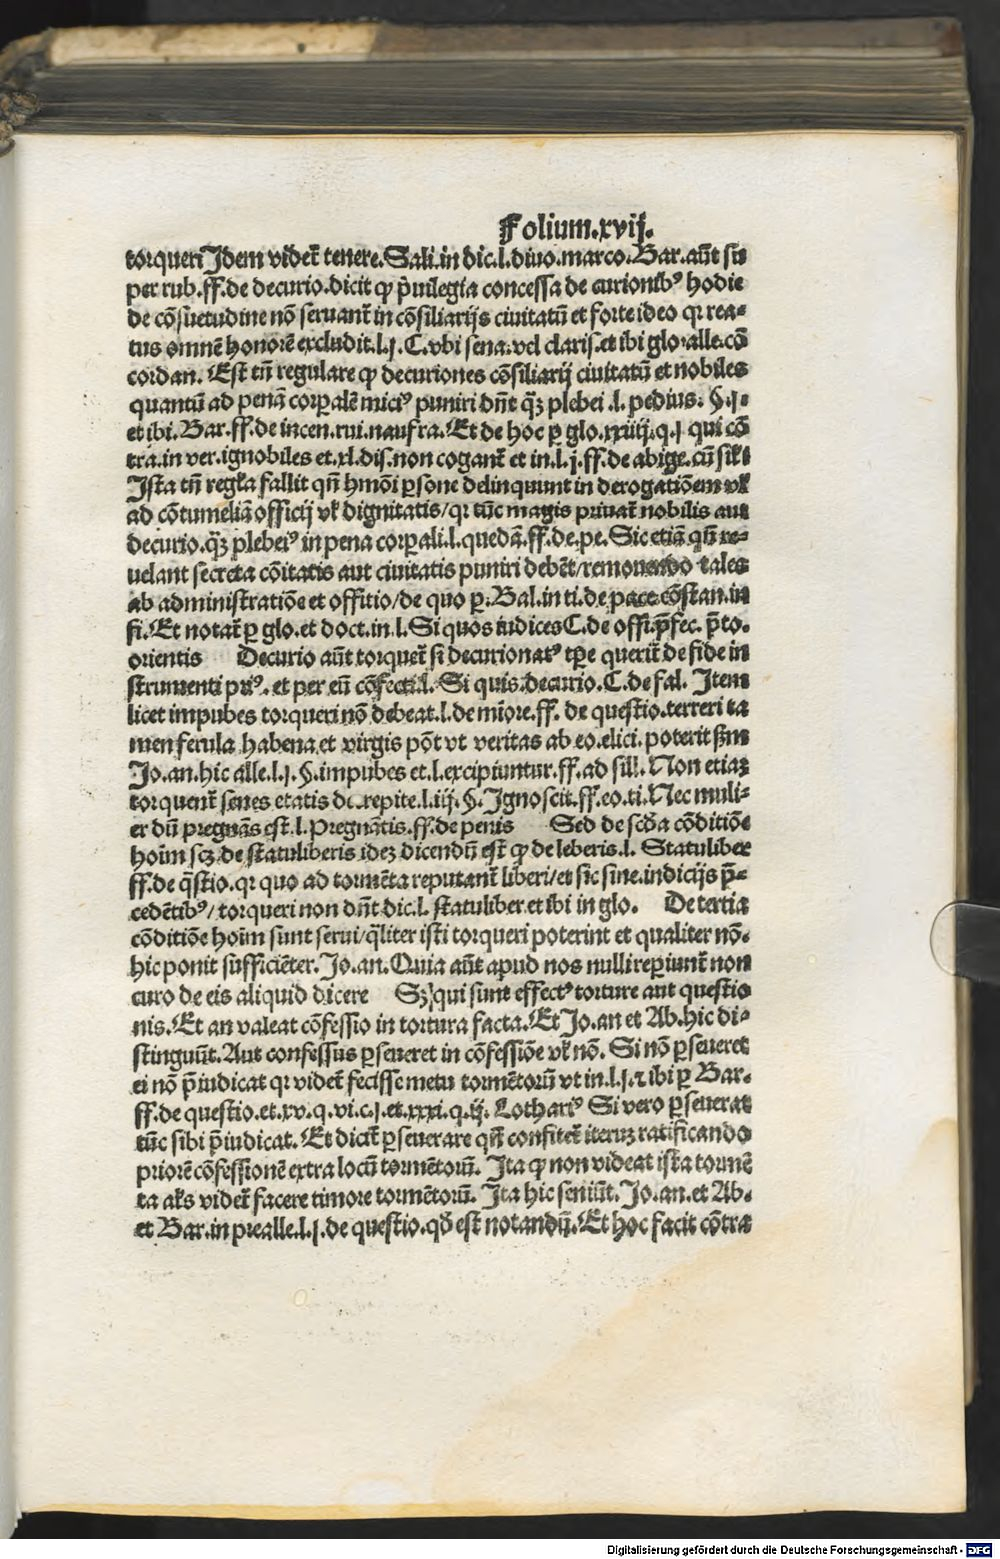 Folium.xvij.
torqueri Idem videt̄ tenere. Sali.in dic.l.diuo.marco.Bar.aūt su
per rub.ff.de decurio.dicit ꝙ p̄uilegia concessa de curionibꝰ hodie
de cōsuetudine nō seruant̄ in cōsiliarijs ciuitatū et forte ideo qꝛ rea⸗
tus omnē honorē excludit.l.j.C.vbi sena.vel claris.et ibi glo.alle.cō
cordan. Est tn̄ regulare ꝙ decuriones cōsiliarij ciuitatū et nobiles
quantū ad penā corꝑalē miciꝰ puniri dn̄t q̄ꝫ plebei .l. pedius. §.j.
et ibi.Bar.ff.de incen.rui.naufra.Et de hoc ꝑ glo.xxiiij.q.j qui cō
tra.in ver.ignobiles et.xl.dis.non cogant̄ et in.l.j.ff.de abige.cū sil'i
Ista tn̄ regl'a fallit qn̄ hmōi ꝑsone delinquunt in derogatiōem vl'
ad cōtumeliā officij vl' dignitatis/qꝛ tūc magis priuat̄ nobilis aut
decurio.q̄ꝫ plebeiꝰ in pena corꝑali.l.quedā.ff.de.pe.Sic etiā qn̄ re⸗
uelant secreta cōitatis aut ciuitatis puniri debēt/remouendo tales
ab administratiōe et offitio/de quo ꝑ.Bal.in ti.de pace.cōstan.in
fi.Et notat̄ ꝑ glo.et doct.in.l.Si quos iudices C.de offi.p̄fec.p̄to.
orientis Decurio aūt torquet̄ si decurionatꝰ tp̄e querit̄ de fide in
strumenti priꝰ.et per eū cōfecti.l. Si quis.decurio.C.de fal. Item
licet impubes torqueri nō debeat.l.de miōre.ff. de questio.terreri ta
men ferula habena et virgis pōt vt veritas ab eo.elici.poterit sm̄
Jo.an.hic alle.l.j.§.impubes et.l.excipiuntur.ff.ad sill. Non etiaꝫ
torquent̄ senes etatis decrepite.l.iij.§.Ignoscit.ff.eo.ti.Nec muli⸗
er dū pregnās est.l.Pregnātis.ff.de penis Sed de scd̄a cōditiōe
hoīm scꝫ.de statuliberis ideꝫ dicendū est ꝙ de leberis.l. Statuliber
ff.de q̄stio.qꝛ quo ad tormēta reputant̄ liberi/et sic sine.indicijs p̄⸗
cedētibꝰ/torqueri non dn̄t dic.l. statuliber et ibi in glo. De tertia
cōditiōe hoīm sunt serui/q̄liter isti torqueri poterint et qualiter nō.
hic ponit sufficiēter.Jo.an.Quia aūt apud nos nulli reꝑiunt̄ non
curo de eis aliquid dicere Sꝫ qui sunt effectꝰ torture aut questio
nis.Et an valeat cōfessio in tortura facta.Et Jo.an et Ab.hic di⸗
stinguūt.Aut confessus ꝑseueret in cōfessiōe vl' nō. Si nō ꝑseueret
ei nō p̄iudicat qꝛ videt̄ fecisse metu tormētorū vt in.l.j.⁊ ibi ꝑ Bar.
ff.de questio.et.xv.q.vi.c.j.et.xxxi.q.ij. Lothariꝰ Si vero ꝑseuerat
tūc sibi p̄iudicat. Et dicit̄ ꝑseuerare qn̄ confitet̄ iteruꝫ ratificando
priorē cōfessionē extra locū tormētorū. Ita ꝙ non videat ista tormē
ta al's videt̄ facere timore tormētorū. Ita hic seniūt.Jo.an.et Ab.
et Bar.in prealle.l.j.de questio.qd̄ est notandū.Et hoc facit cōtra
Digitalisierung gefördert durch die Deutsche Forschungsgemeinschaft - DFG